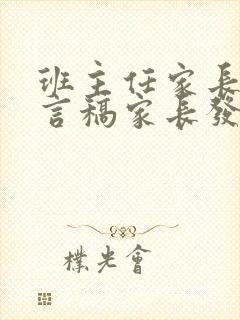 班主任家長
言稿家長發
樸光會